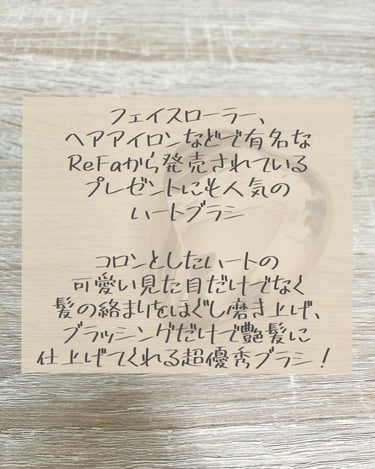 フェイスローラー、
ヘアアイロンなどで有名な
ReFaから発売されている
プレゼントにも人気の
ハートブラシ
コロンとしたハートの
可愛い見た目だけでなく
髪の絡まりをほぐし磨き上げ、
ブラッシングだけで艶髪に
仕上げてくれる超優秀ブラシ！